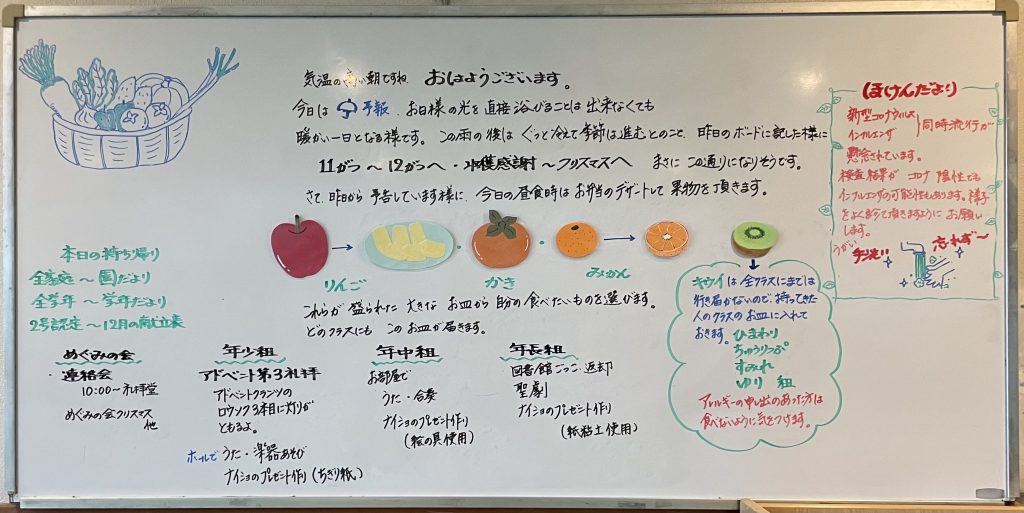 気温の高い朝ですね おはようございます。
今日は 予報、お日様の光を直接浴びることは出来なくても
暖かい一日となる様です。この雨の後は ぐっと冷えて季節は進むとのこと、昨日のボードに記した様に
11がつ〜12がつへ・収穫感謝〜クリスマスへ まさに この通りになりそうです。
さて、昨日から予告しています様に、今日の昼食時はお弁当のデザートとして 果物を頂きます。
りんご
かき
みかん
これらが 盛られた 大きな お皿から 自分の食べたいものを選びます。
どのクラスにも このお皿が届きます。
キウイは全クラスにまでは
行き届かないので、持ってきた
人のクラスの お皿に入れて
おきます。
ひまわり
ちゅうりっぷ
すみれ
ゆり 組
アレルギーの申し出のあった方は
食べないように気をつけます。
ほけんだより
新型コロナウィルス
インフルエンザ
同時流行が
懸念されています。
検査結果が コロナ 陰性でも
インフルエンザの可能性もあります。様子
をよく診て頂きますように お願い
します。
うがい
手洗い
忘れず〜
本日の持ち帰り
全家庭〜園だより
全学年〜学年だより
2号認定〜12月の献立表
めぐみの会
連絡会
10:00〜礼拝堂
めぐみの会クリスマス
他
年少組
アドベント第3礼拝
アドベントクランツの
ロウソク3本目に灯りが
ともるよ。
ホールで うた・楽器あそび
ナイショのプレゼント作り(ちぎり紙)
年中組
お部屋で
うた・合奏
ナイショのプレゼント作り
(絵の具使用)
年長組
図書館ごっこ 返却
聖劇
ナイショのプレゼント作り
(紙粘土使用)